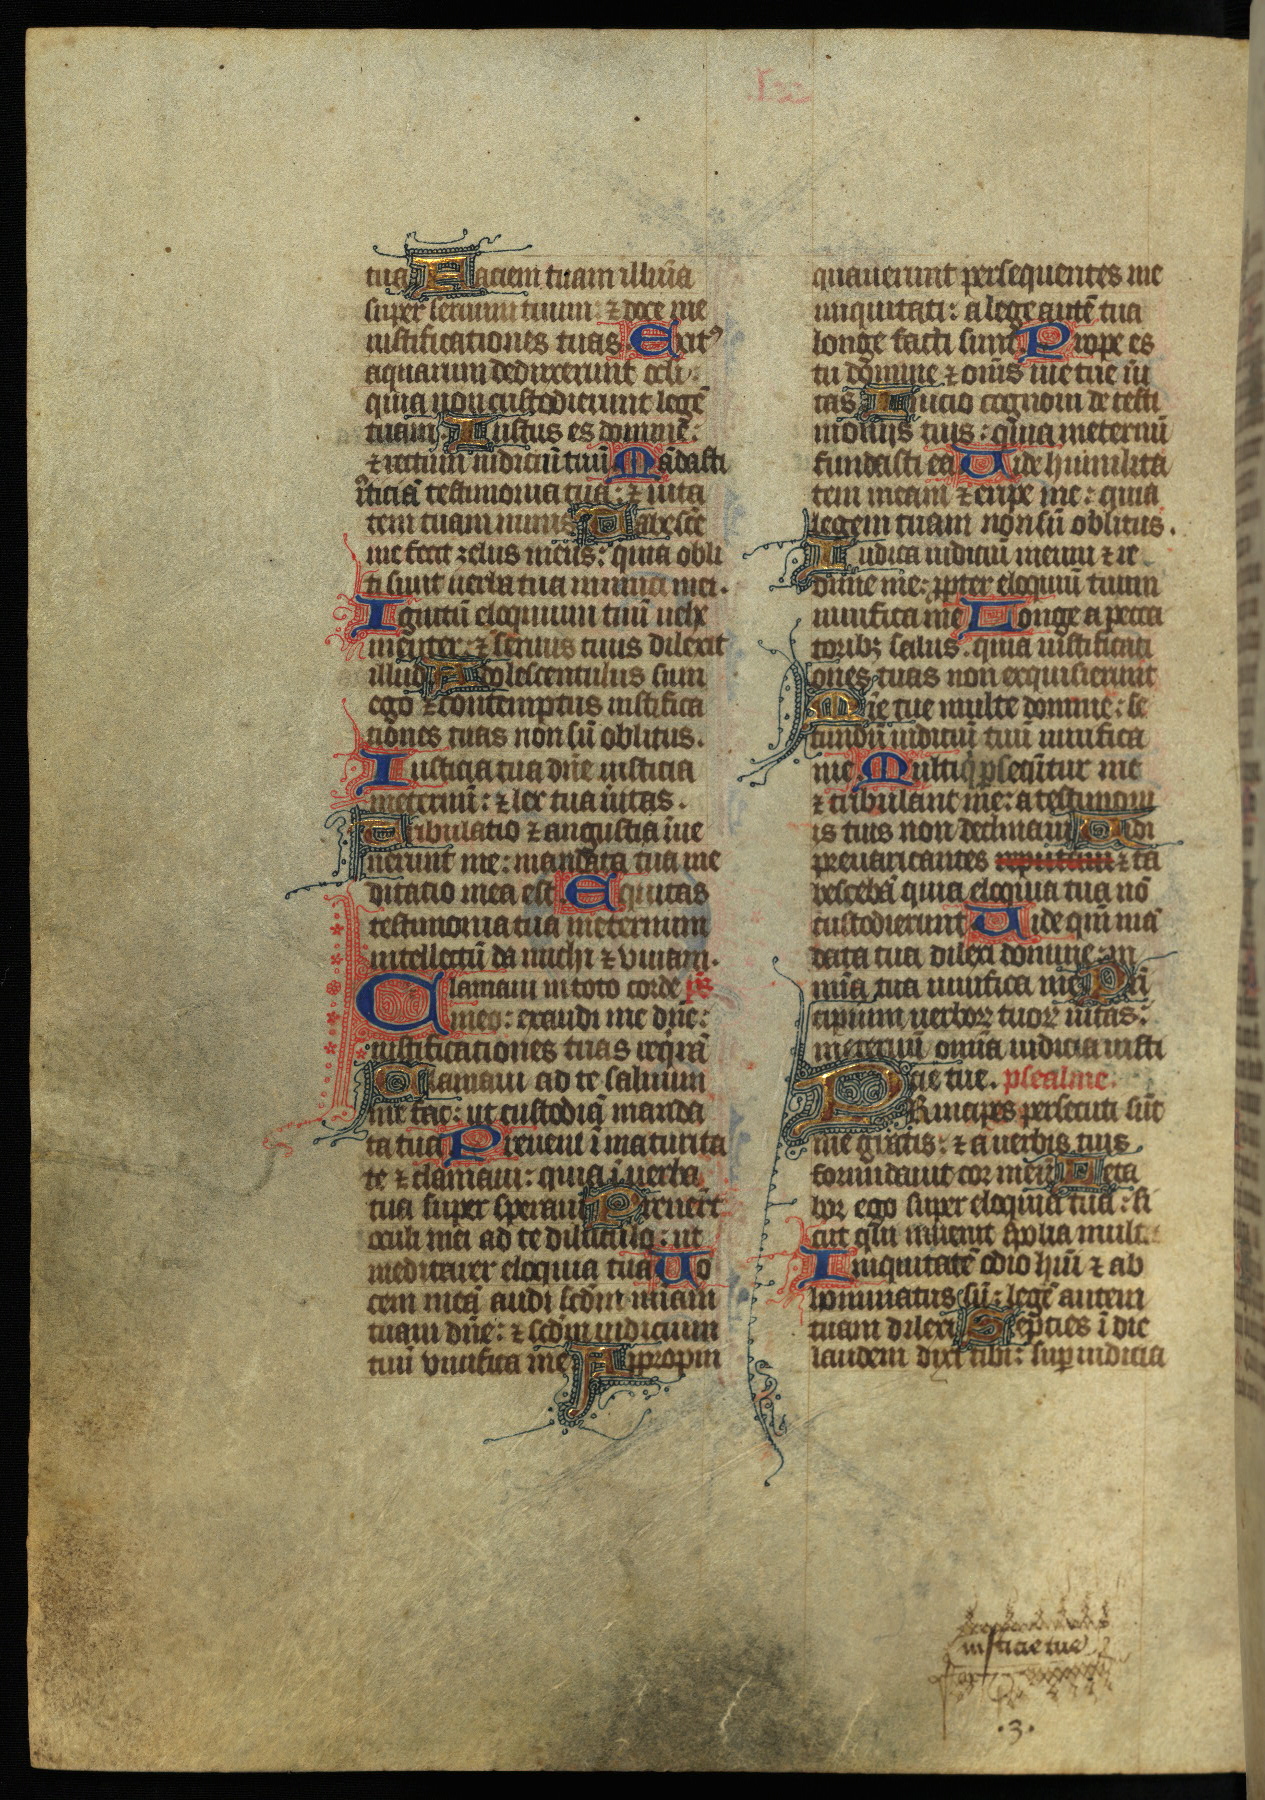 tua Faciem tuam illuīa
super seruum tuum: ⁊ doce me
iustificationes tuas. Exitꝰ
aquarum deduxerunt celi:
quia non custodierunt legē
tuam. Iustus es domine:
⁊ rectum iudiciū tuū Mādasti
iusticiā testimonia tua: ⁊ uita
tem tuam nimis Tabesce
me fecit zelus meus: quia obli
ti sunt uerba tua inimici mei.
Ignitū eloquium tuū uehe
menter: ⁊ seruus tuus dilexit
illud Adolescentulus sum
ego ⁊ contemptus iustifica
tiones tuas non sū oblitus.
Iusticia tua dn̄e iusticia
ineternū: ⁊ lex tua uītas.
Tribulatio ⁊ angustia īue
nerunt me: mandata tua me
ditatio mea est Equitas
testimonia tua ineternum
intellectū da michi ⁊ viuam.
Clamaui in toto corde
meo: exaudi me dn̄e:
iustificationes tuas reqͥrā
Clamaui ad te saluum
me fac: ut custodiā manda
ta tua Preueni ī maturita
te ⁊ clamaui: quia ī uerba
tua super speraui Preuenēt
oculi mei ad te diluculo: ut
meditarer eloquia tua Uo
cem meā audi scd̄m miām
tuam dn̄e: ⁊ scd̄m iudicium
tuū viuifica me Appropin
quauerunt persequentes me
iniquitati: a lege autē tua
longe facti sunt. Prope es
tu domine ⁊ om̄s uie tue uī
tas Inicio cognoui de testi
moniis tuis: quia ineternū
fundasti ea Uide humilita
tem meam ⁊ eripe me: quia
legem tuam non sū oblitus.
Iudica iudiciū meum ⁊ re
dime me: ꝓpter eloquiū tuum
uiuifica me Longe a pecca
toribꝫ salus. quia iustificati
ones tuas non exquisierunt
Mīe tue multe domine: se
cundū iudiciū tuū uiuifica
me Multi qͥ ꝑsequūtur me
⁊ tribulant me: a testimoni
is tuis non declinaui Uidi
preuaricantes ⁊ ta
bescebā quia eloquia tua nō
custodierunt Uide qm̄ mā
data tua dilexi domine: in
mīa tua uiuifica me Prī
cipium uerboꝝ tuoꝝ uītas:
ineternū omīa iudicia iusti
cie tue. psealme.
Principes persecuti sūt
me gratis: ⁊ a uerbis tuis
formidauit cor meū Leta
boꝝ ego super eloquia tua: si
cut qui inuenit spolia multa
Iniquitatē odio hūi ⁊ ab
hominatus sū: legē autem
tuam dilexi Septies ī die
laudem dixi tibi: suꝑ iudicia
iusticie tue
.3.